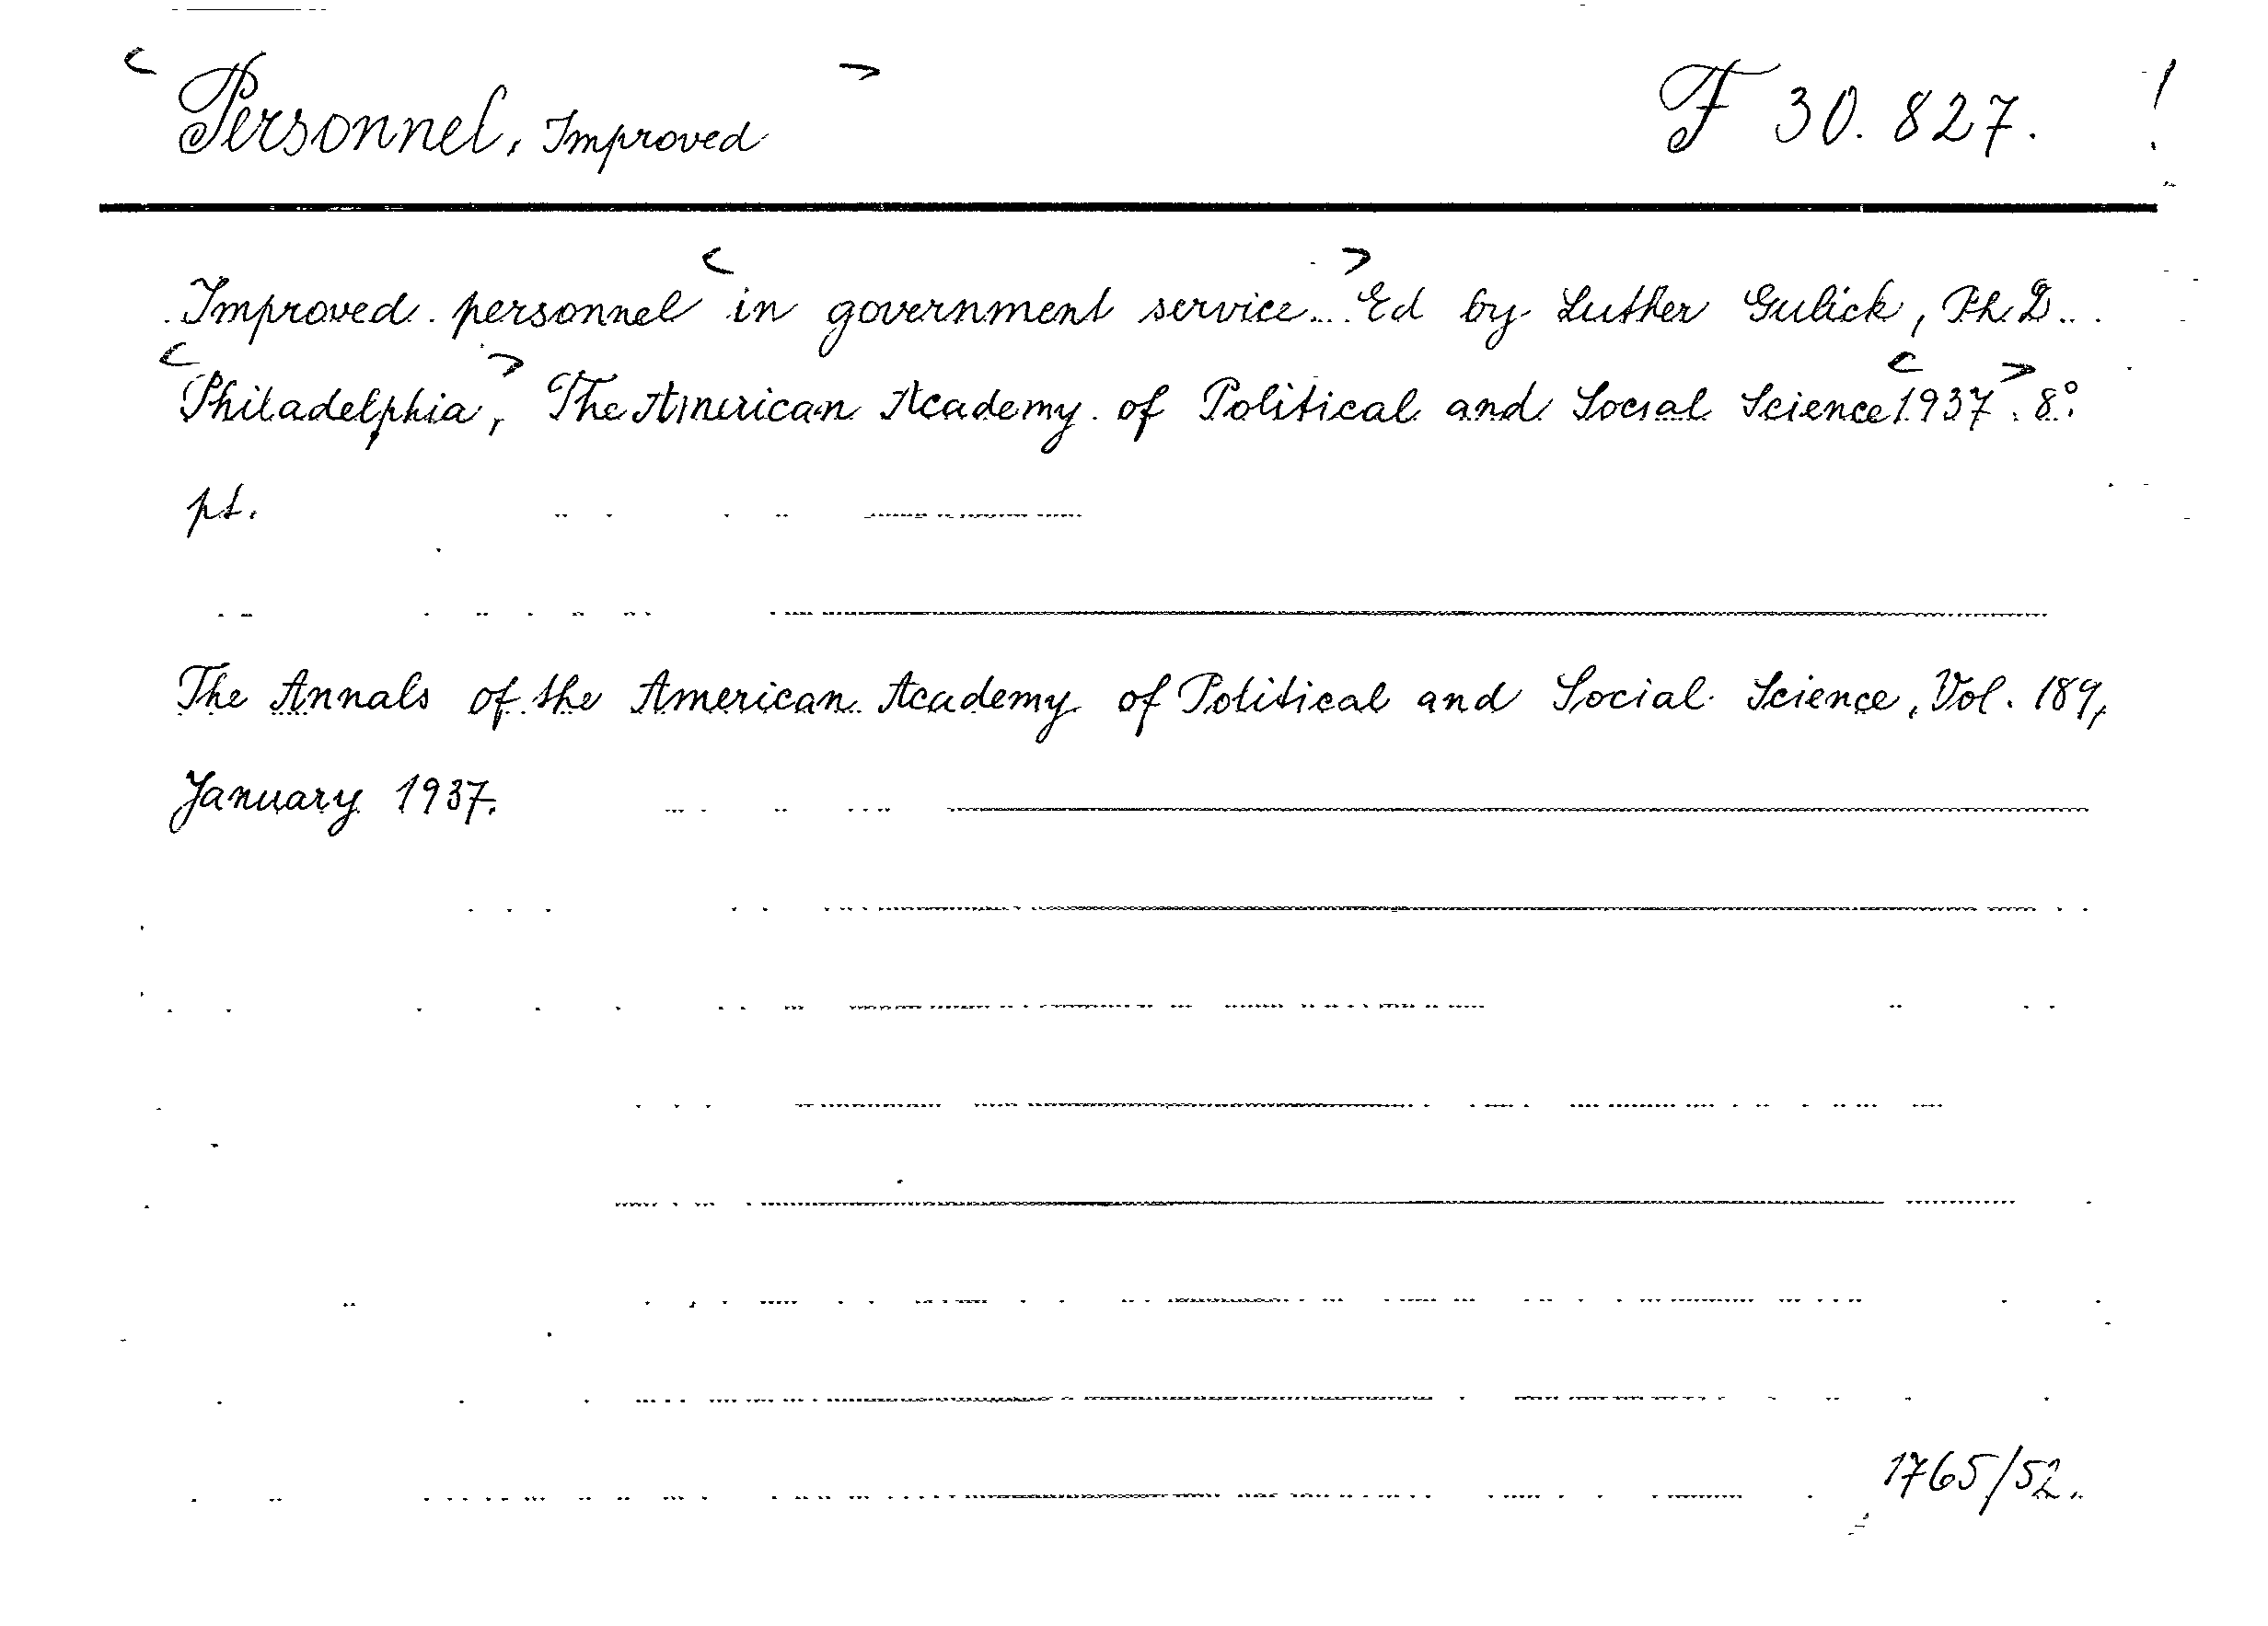 Personnel, Improved F 30.827. !
Improved personnel in government service... Ed by Luther Gulick, Ph. D...
Philadelphia, The American Academy of Political and Social Science 1937. 8°.
pt.
The Annals of the American Academy of Political and Social Science, Vol. 189,
January 1937.
1765/52.